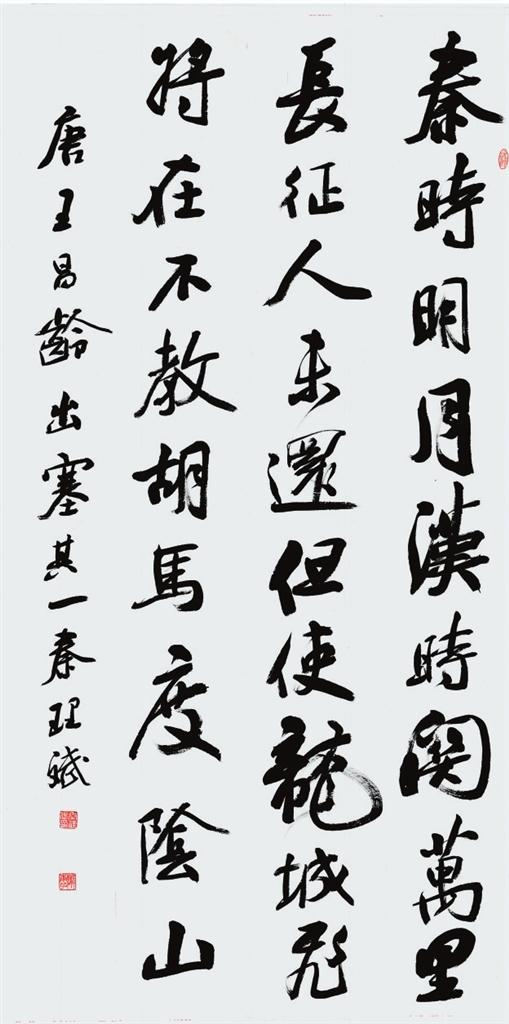 秦時明月漢時関萬里
長征人未還但使龍城飛
将在不教胡馬度陰山
唐王昌齡出塞其一秦理斌